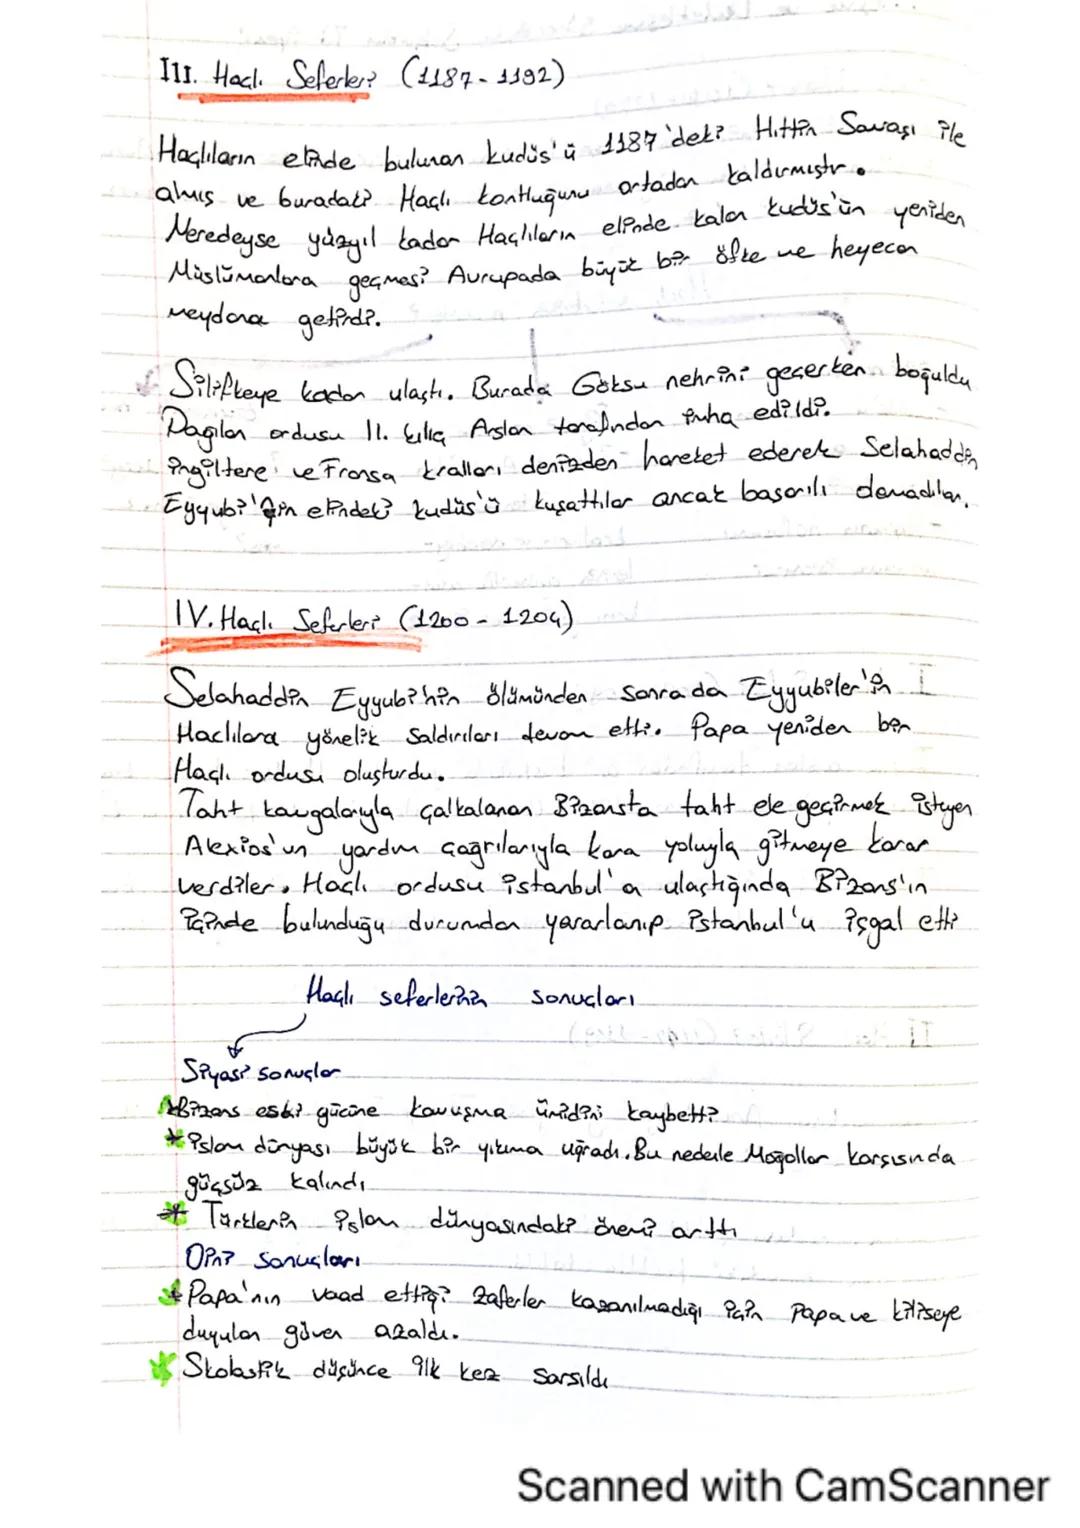 III. Haçlı Seferleri (1187-1192)
Haçlıların elinde bulunan kudüs'ü 1187'deki Hıttin Savaşı ile
almış ve buradaki Haçlı kontluğunu ortadan kaldırmıştır.
Neredeyse yüzyıl kadar Haçlıların elinde kalan kudüs'ün yeniden
Müslümanlara geçmesi Avrupada büyük bir öfke ve heyecan
meydana getirdi.
Silifkeye kadar ulaştı. Burada Göksu nehrini geçerken boğuldu
Dağılan ordusu II. kılıç Arslan tarafından imha edildi.
ingiltere ve Fransa kralları denizden hareket ederek Selahaddin
Eyyubi'nin elindeki kudüs'ü kuşattılar ancak başarılı olamadılar.
IV. Haçlı Seferleri (1200-1204)
Selahaddin Eyyubi'nin ölümünden sonra da Eyyubiler'in
Haclılara yönelik saldırıları devam etti. Papa yeniden bir
Haçlı ordusu oluşturdu.
Taht kavgalarıyla çalkalanan Bizansta taht ele geçirmek isteyen
Alexios'un yardım çağrılarıyla kara yoluyla gitmeye karar
verdiler. Haçlı ordusu istanbul'a ulaştığında Bizans'ın
içinde bulunduğu durumdan yararlanıp istanbul'u işgal etti
Haçlı seferlerinin sonuçları
Siyasi sonuçlar
*Bizans eski gücüne kavuşma ümidini kaybetti
* islam dünyası büyük bir yıkıma uğradı. Bu nedenle Moğollar karşısında
güçsüz kalındı
* Türklerin islam dünyasındaki önemi arttı
Dini sonuçları
* Papa'nın vaad ettiği zaferler kazanılmadığı için Papa ve kiliseye
duyulan güven azaldı.
* Skolastik düşünce ilk kez sarsıldı
Scanned with CamScanner